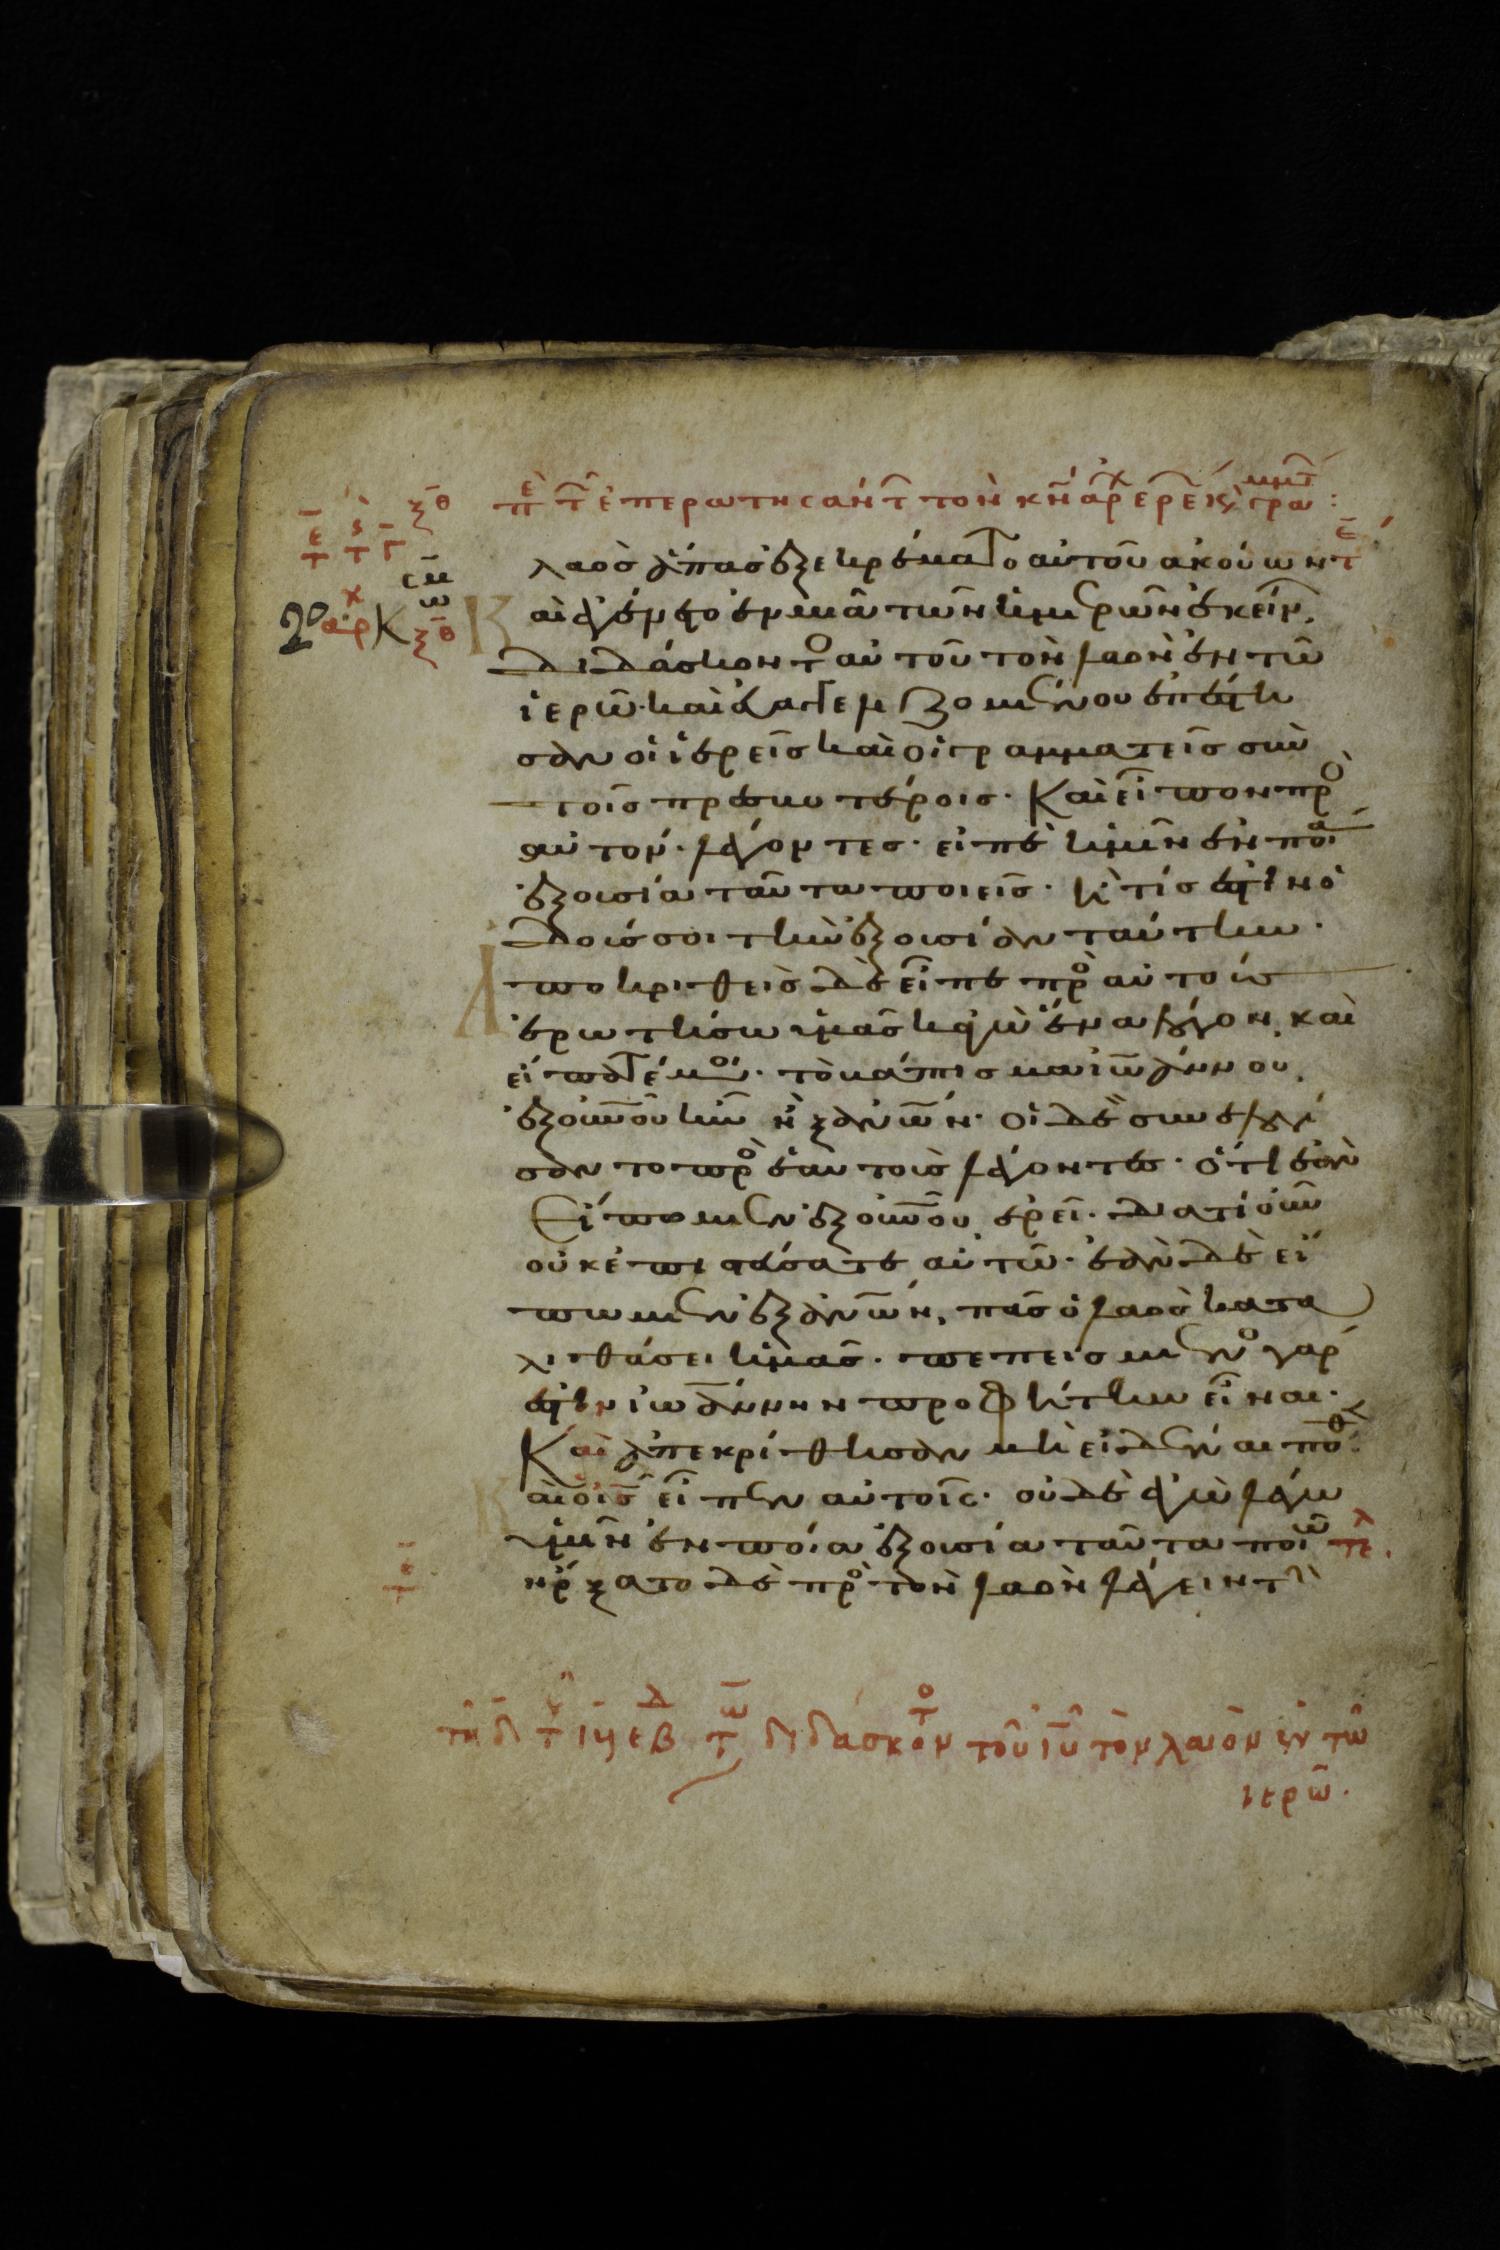 λαὸς ἅπας ἐξεκρέματο αὐτοῦ ἀκούων
Καὶ ἐγένετο ἐν μιᾶ τῶν ἡμερῶν ἐκείν
διδάσκοντο αὐτοῦ τὸν λαὸν ἐν τῶ
ἱερῶ· καὶ εὐαγγελιζομένου ἐπέστη
σαν οἱ ἱερεῖς καὶ οἱ γραμματεῖς σὺν
τοῖς πρεσβυτέροις· Καὶ εἶπον πρὸ
αὐτόν· λέγοντες· εἰπὲ ἡμῖν ἐν ποία
ἐξουσία ταῦτα ποιεῖς· ἢ τίς ἐστιν ὁ
δούς σοι τὴν ἐξουσίαν ταύτην·
Ἀποκριθεὶς δὲ εἶπε πρὸ αὐτούς
ἐρωτήσω ὑμᾶς κἀγὼ ἕνα λόγον, καὶ
εἴπατέ μοι· τὸ βάπτισμα ἰωάννου,
ἐξ οὐνοῦ ἦν ἢ ἐξ ἀνων· οἱ δὲ συνελογί
σαντο πρὸ ἑαυτοὺς λέγοντες· ὅτι ἐὰν
Εἴπωμεν ἐξ οὐνοῦ, ἐρεῖ· διατί οὖν
οὐκ ἐπιστεύσατε αὐτῶ· ἐὰν δὲ εἴ
πωμεν ἐξ ἀνων, πᾶς ὁ λαὸς κατα
λιθάσει ἡμᾶς· πεπεισμένο γάρ
ἐστιν ἰωάννην προφήτην εἶναι·
Καὶ ἀπεκρίθησαν μὴ εἰδέναι ποθ
Καὶ ὁ ις εἶπεν αὐτοῖς· οὐδὲ ἐγὼ λέγω
ὑμῖν ἐν ποία ἐξουσία ταῦτα ποιῶ
ἤρξατο δὲ πρὸ τὸν λαὸν λέγειν τὴ
διδάσκον το τοῦ ιυ τὸν λαὸν ἐν τῶ
ιερῶ·